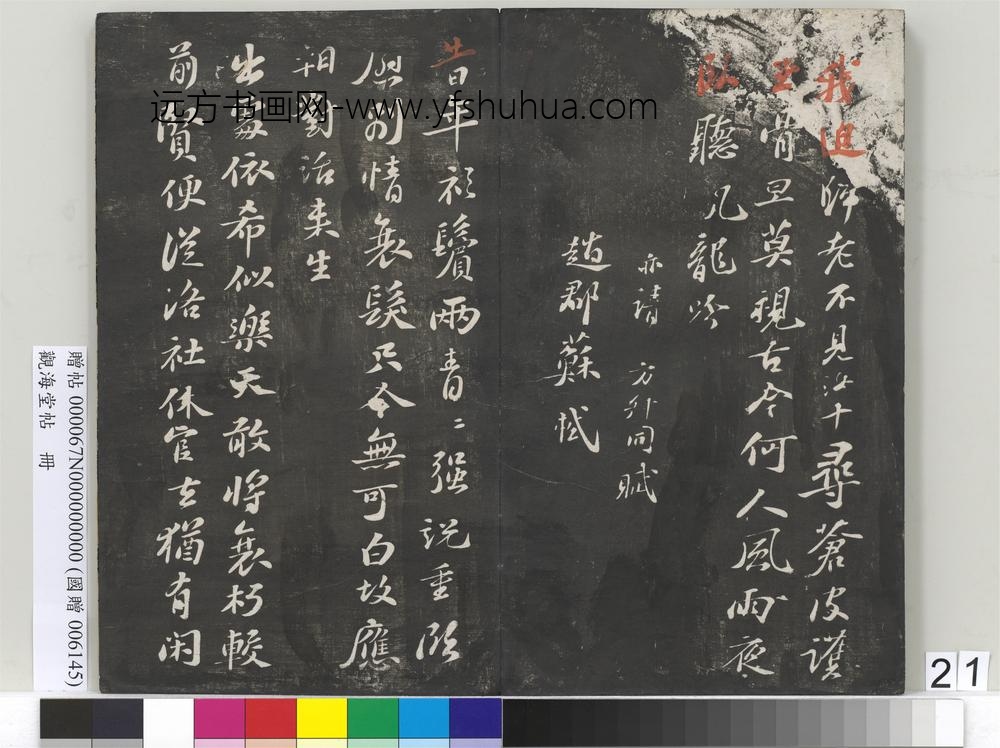 我 歸老不見汝十尋蒼皮護
玉骨旦莫視古今何人風雨夜
臥聽 龍吟
亦請 方外同賦
趙郡蘇軾
當年衫鬢兩青二強説重臨
慰别情衰髮只今無可白故應
相對話来生
出處依希似樂天敢將衰朽較
前賢便從洛社休官去猶有閑
远方书画网-www.yfshuhua.com
贈帖 000067N000000000 (國贈 006145)
觀海堂帖 冊
21